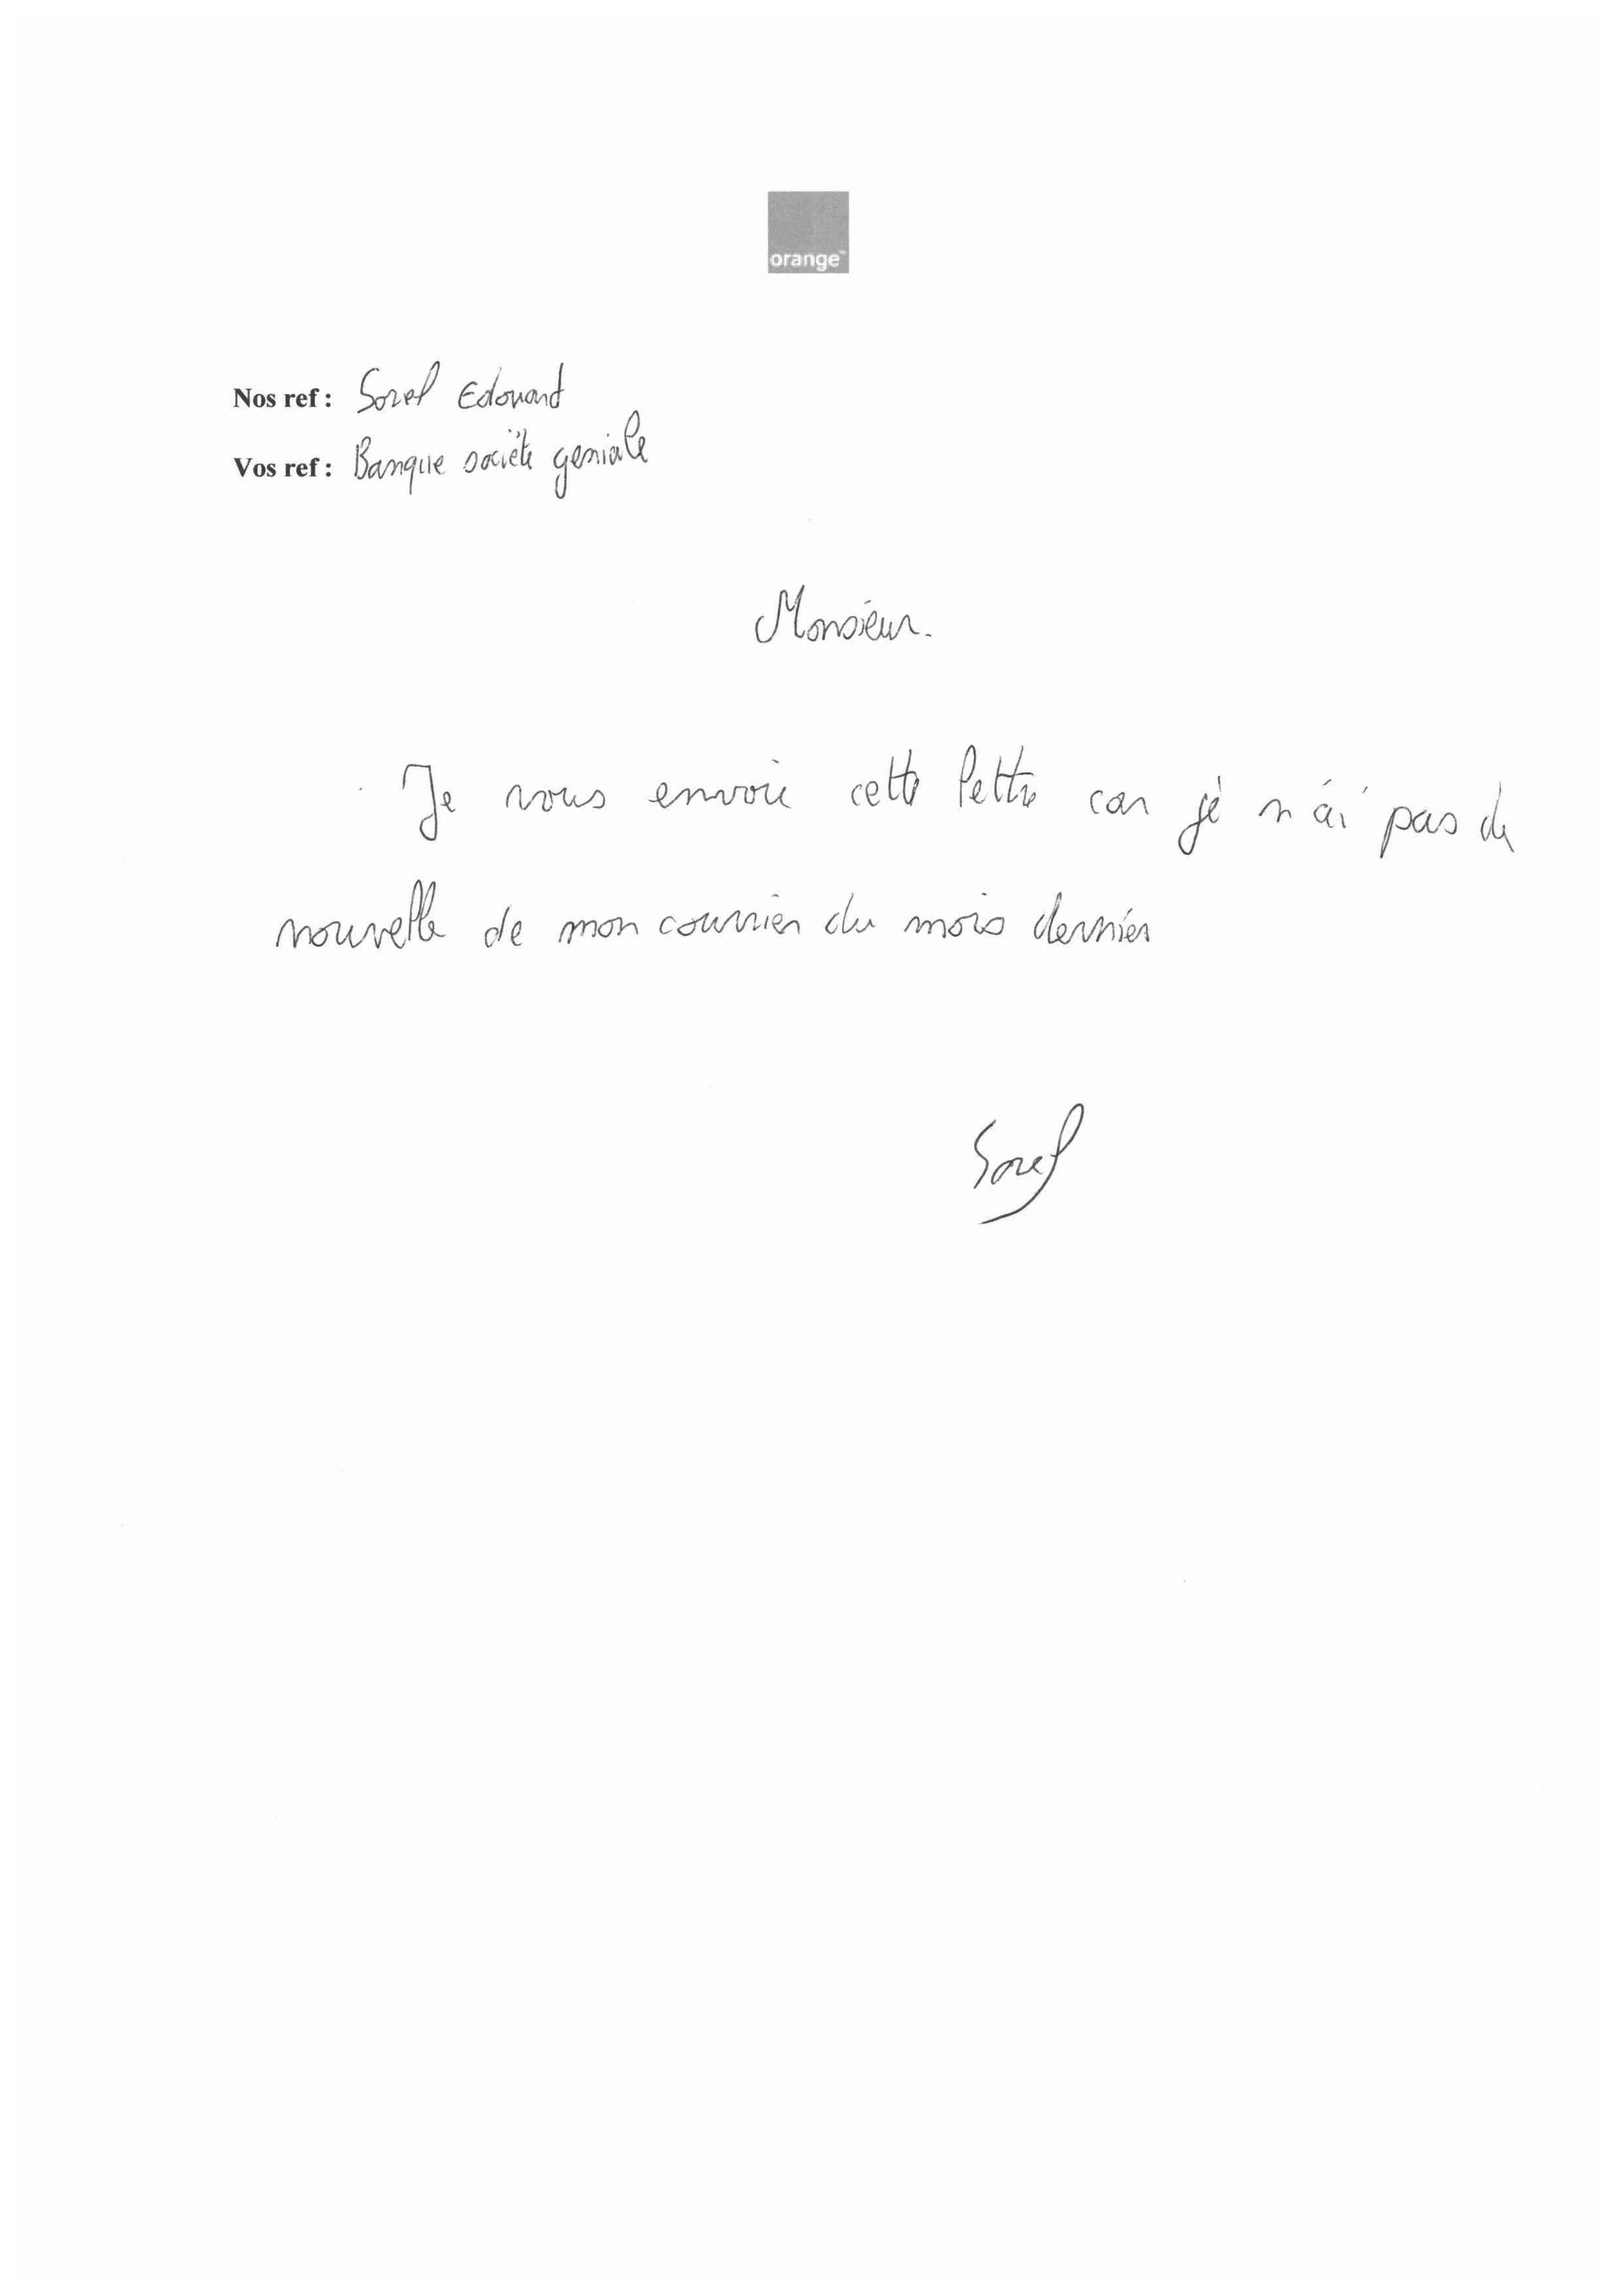 orange™
Nos ref : Sorel Edouard
Vos ref : Banque société geniale
Monsieur.
Je vous envoie cette lettre car je n'ai pas de
nouvelle de mon courrier du mois dernier
Sorel